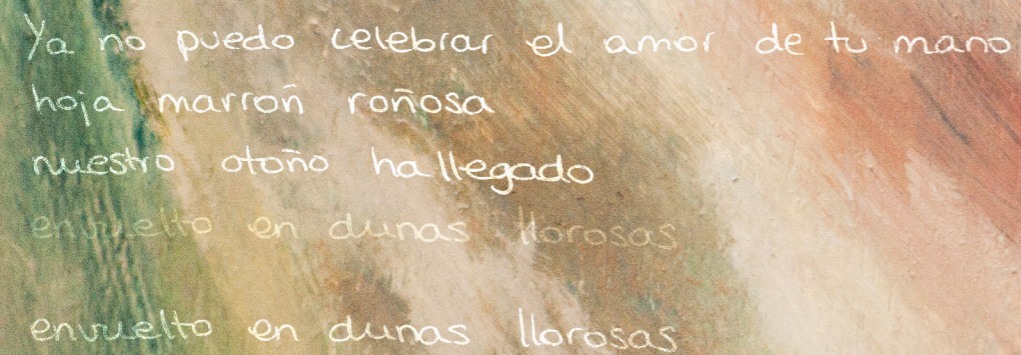 Ya no puedo celebrar el amor de tu mano
hoja marroñ roñosa
nuestro otoño ha llegado
envuelto en dunas llorosas
envuelto en dunas llorosas